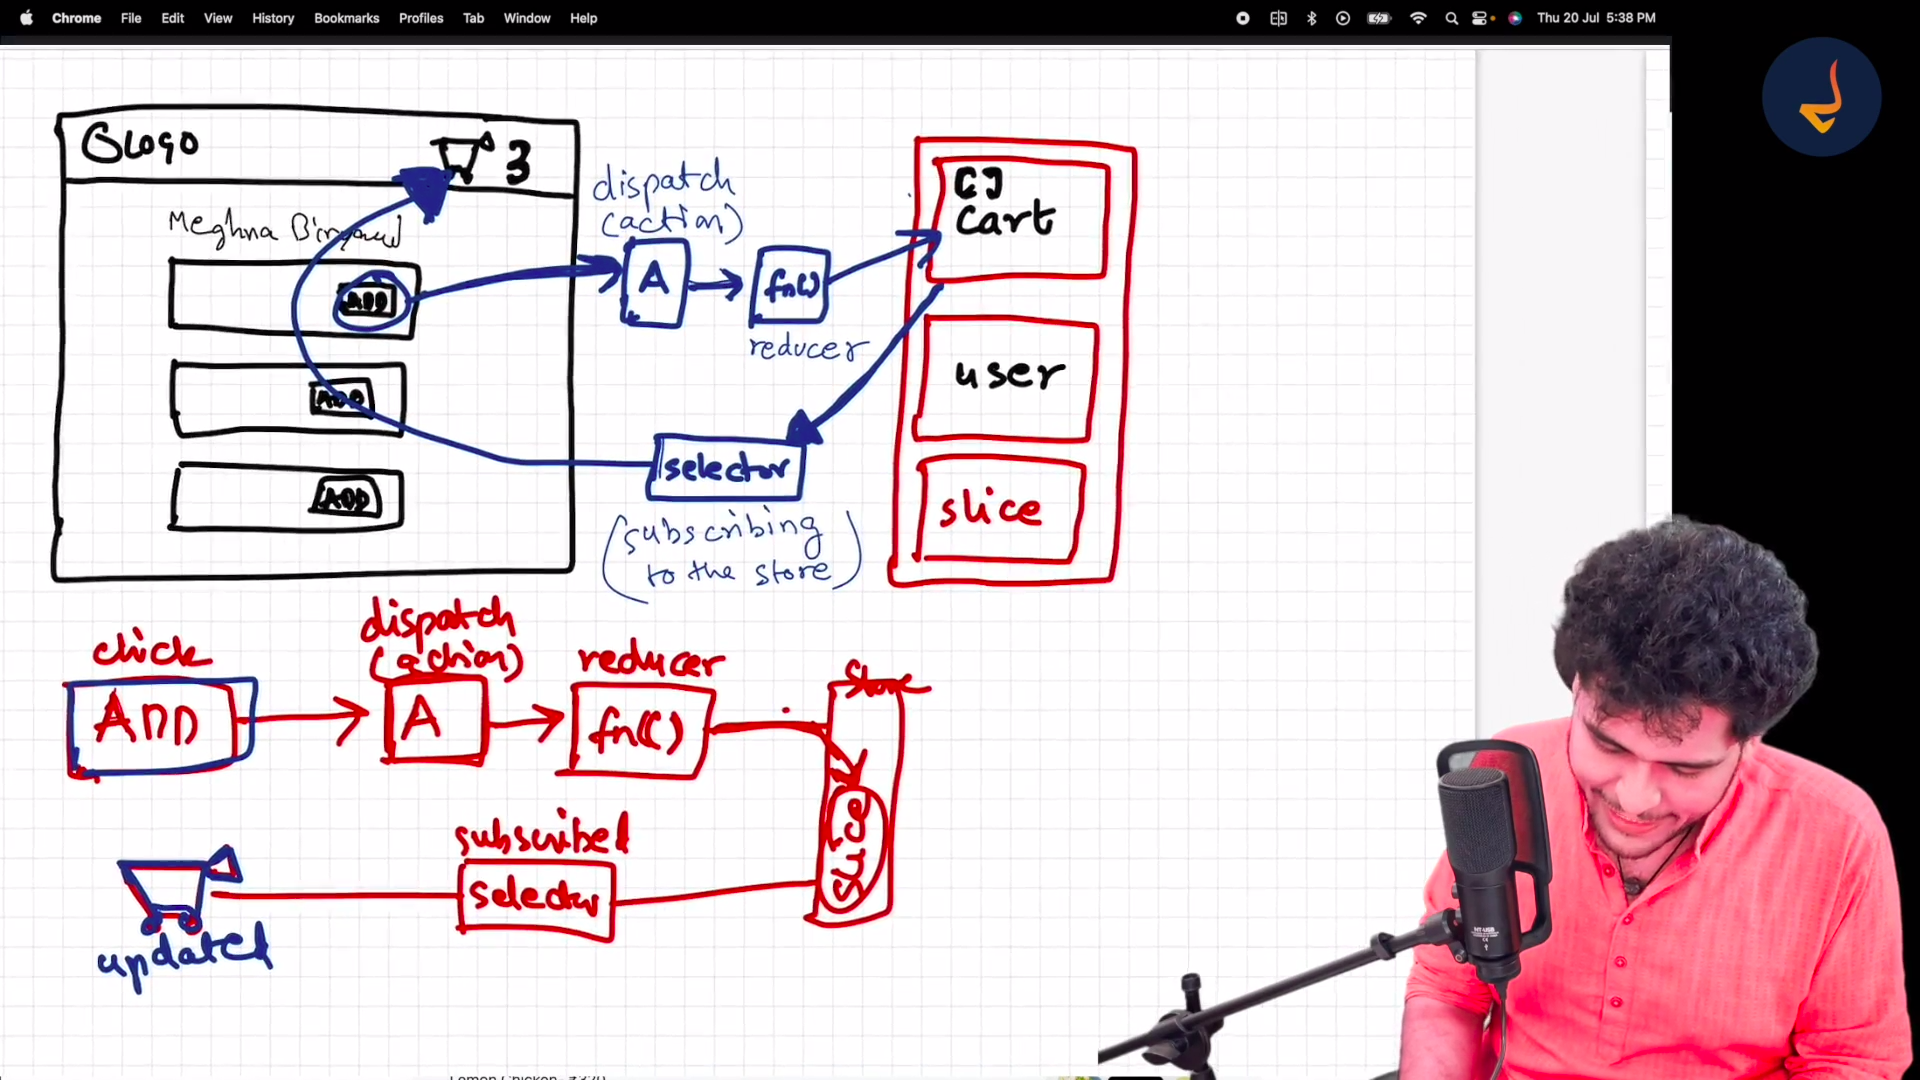 Chrome File Edit View History Bookmarks Profiles Tab Window Help Thu 20 Jul 5:38 PM
Logo
3
Meghna
ADD
ADD
ADD
dispatch
(action)
A
fn()
reducer
[]
cart
user
slice
selector
(subscribing
to the store)
click
ADD
dispatch
(action)
A
reducer
fn()
store
slice
subscribed
selector
updated